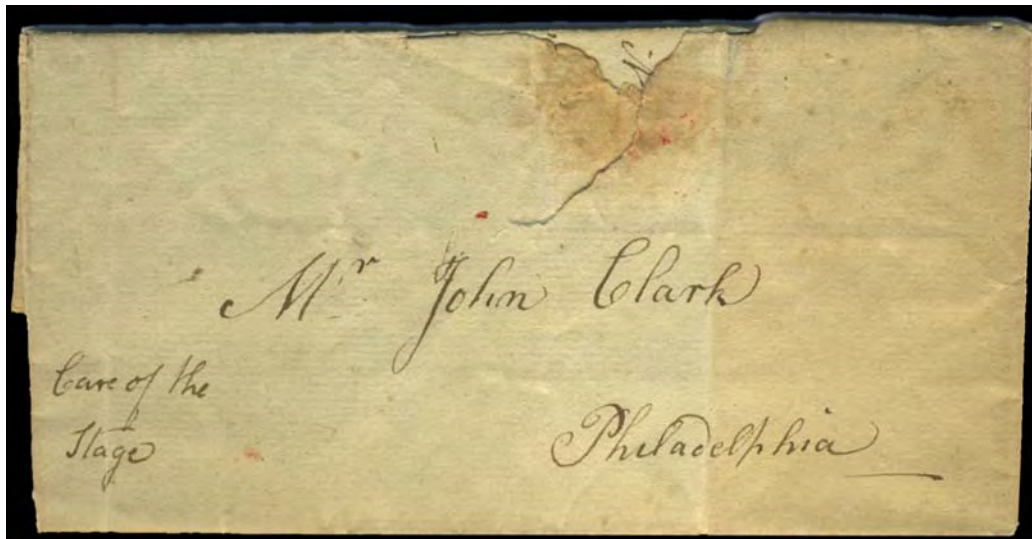 N.
Mr. John Clark
Care of the
Stage
Philadelphia